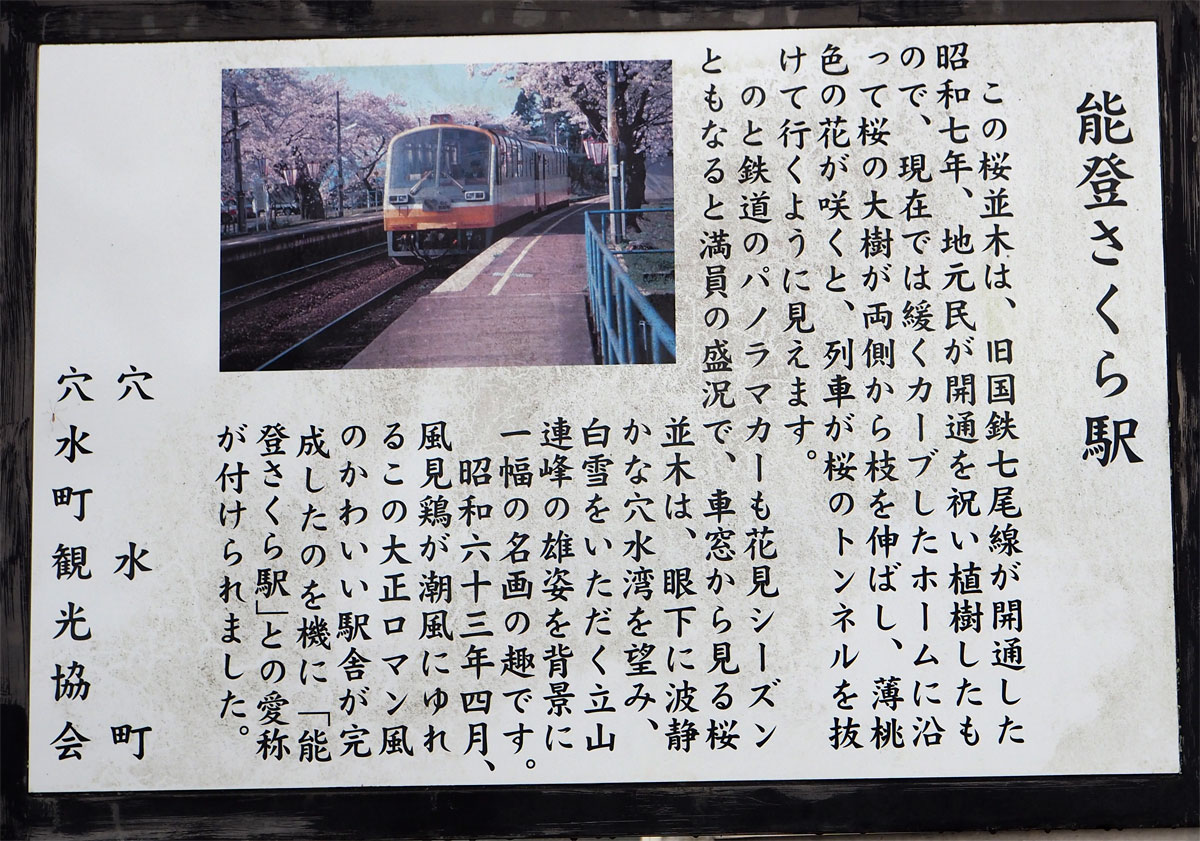 能登さくら駅
この桜並木は、旧国鉄七尾線が開通した
昭和七年、地元民が開通を祝い植樹したも
ので、現在では緩くカーブしたホームに沿
って桜の大樹が両側から枝を伸ばし、薄桃
色の花が咲くと、列車が桜のトンネルを抜
けて行くように見えます。
のと鉄道のパノラマカーも花見シーズン
ともなると満員の盛況で、車窓から見る桜
並木は、眼下に波静
かな穴水湾を望み、
白雪をいただく立山
連峰の雄姿を背景に
一幅の名画の趣です。
昭和六十三年四月、
風見鶏が潮風にゆれ
るこの大正ロマン風
のかわいい駅舎が完
成したのを機に「能
登さくら駅」との愛称
が付けられました。
穴水町
穴水町観光協会